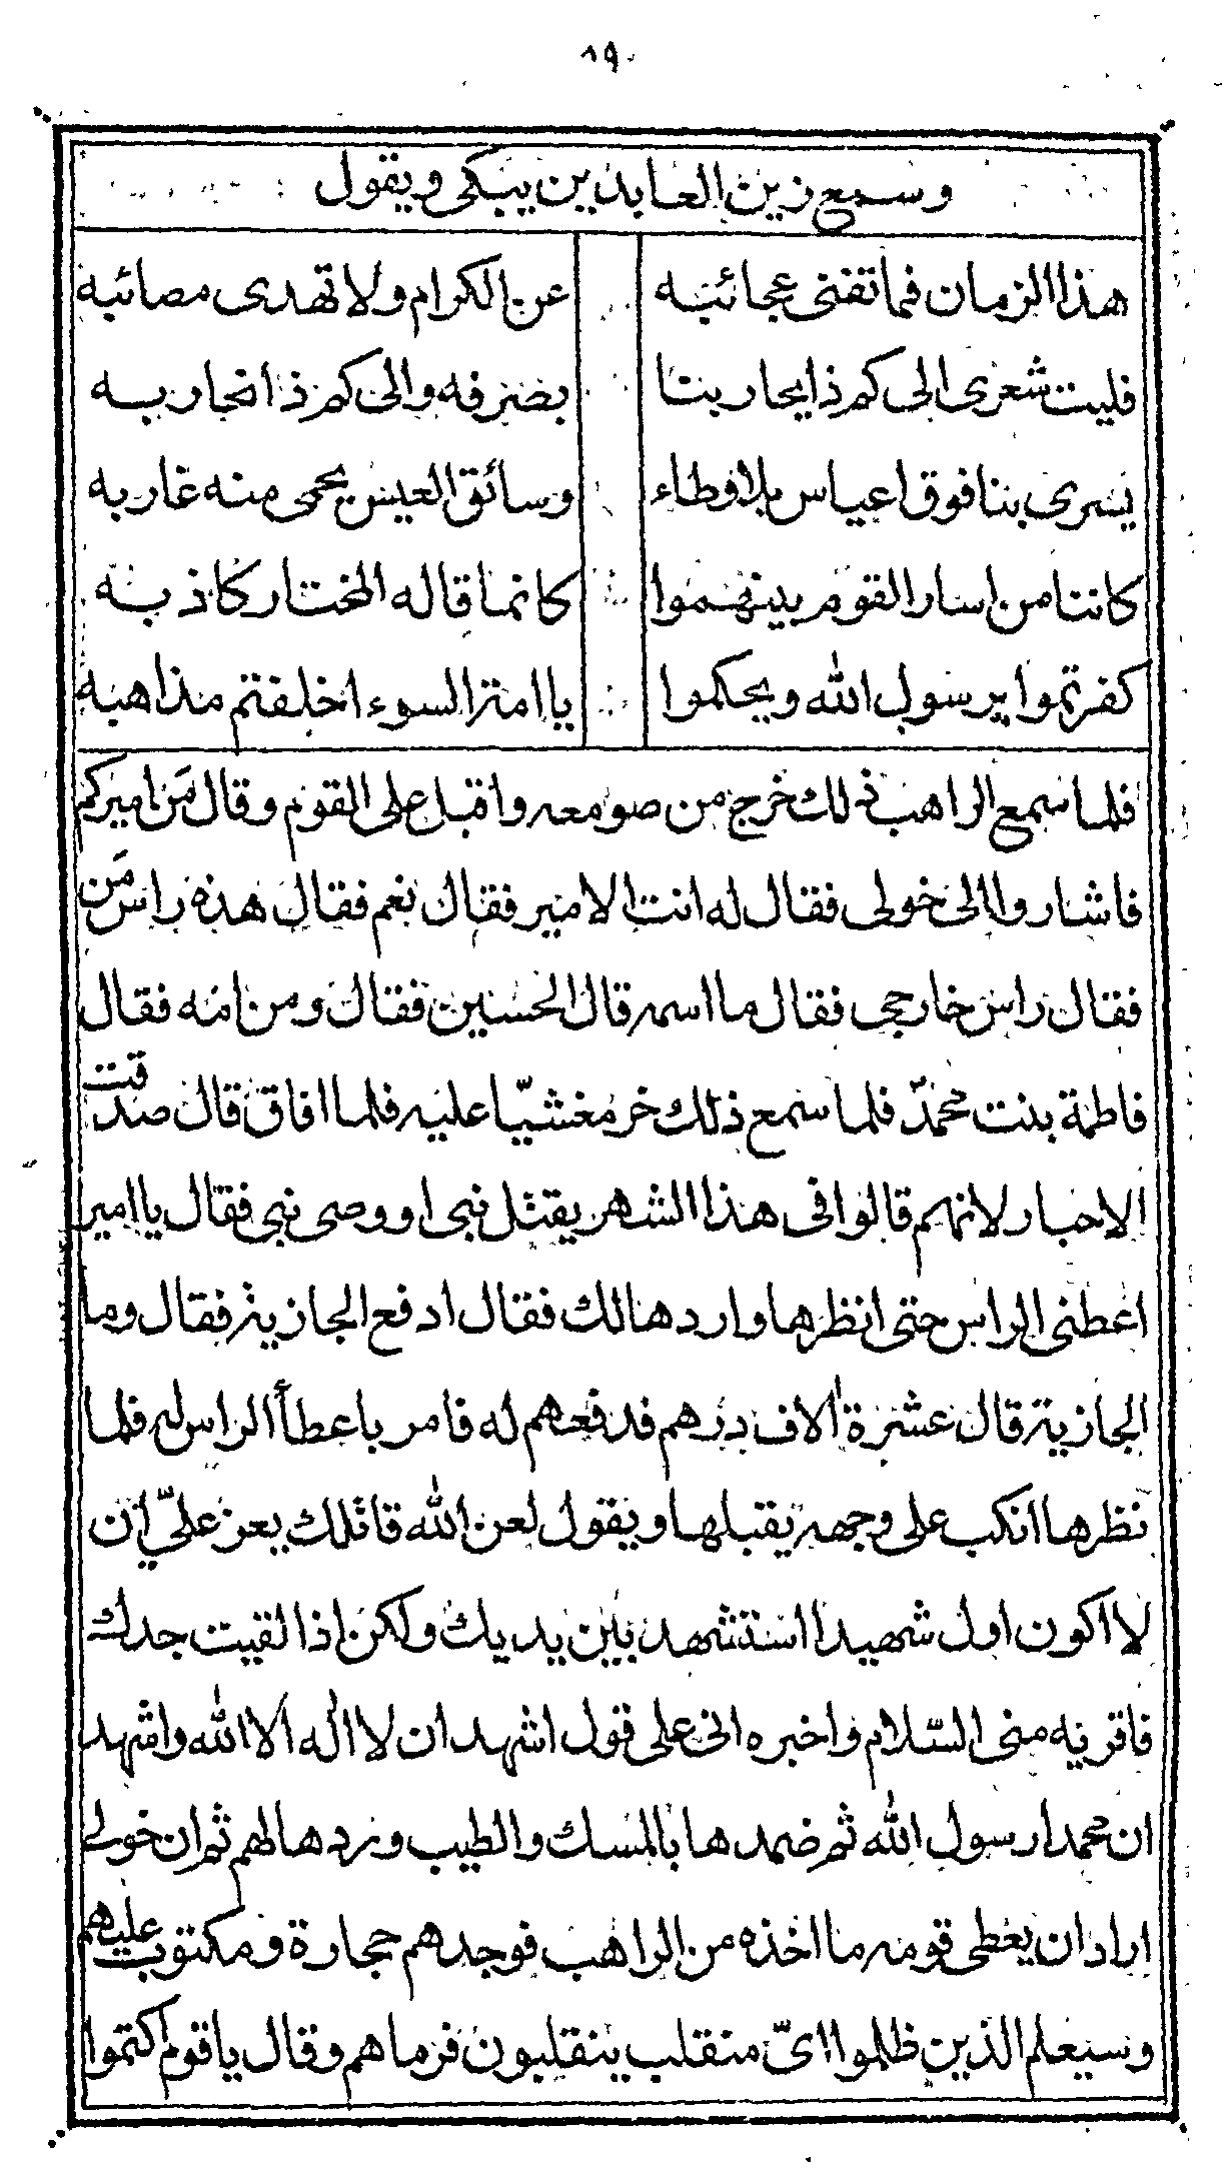 ٨٩
وسمع زين العابدين يبكى ويقول
هذا الزمان فما تفنى عجائبه عن الكرام ولا تهدى مصائبه
فليت شعرى الى كم ذا يحاربنا بصرفه والى كم ذا نحاربه
يسرى بنا فوق اعياس بلا وطاء وسائق العيس يحمى منه غاربه
كاننا من اسار القوم بينهموا كانما قاله المختار كاذبه
كفرتموا برسول الله ويحكموا يا امة السوء اخلفتم مذاهبه
فلما سمع الراهب ذلك خرج من صومعه واقبل على القوم وقال مَن اميركم
فاشاروا الى خولى فقال له انت الامير فقال نعم فقال هذه راس مَن
فقال راس خارجى فقال ما اسمه قال الحسين فقال ومن امه فقال
فاطمة بنت محمّد فلما سمع ذلك خر مغشيّا عليه فلما افاق قال صدقت
الاحبار لانهم قالوا فى هذا الشهر يقتل نبى او وصى نبى فقال يا امير
اعطنى الراس حتى انظرها واردها لك فقال ادفع الجازية فقال وما
الجازية قال عشرة الاف درهم فدفعهم له فامر باعطأ الراس له فلما
نظرها انكب على وجهه يقبلها ويقول لعن الله قاتلك يعز علىّ ان
لا اكون اول شهيدا استشهد بين يديك ولكن اذا لقيت جدك
فاقريه منى السّلام واخبره انى على قول اشهد ان لا اله الا الله واشهد
ان محمدا رسول الله ثم ضمدها بالمسك والطيب وردها لهم ثم ان خولى
اراد ان يعطى قومه ما اخذه من الراهب فوجدهم حجارة ومكتوب عليهم
وسيعلم الذين ظلموا اىّ منقلب ينقلبون فرماهم وقال يا قوم اكتموا